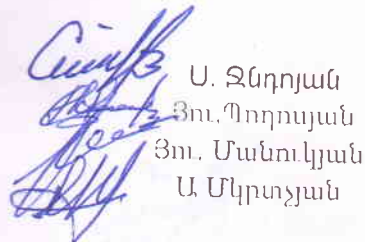 Ս. Ջնդոյան
Յու. Պողոսյան
Յու. Մանուկյան
Ա Մկրտչյան